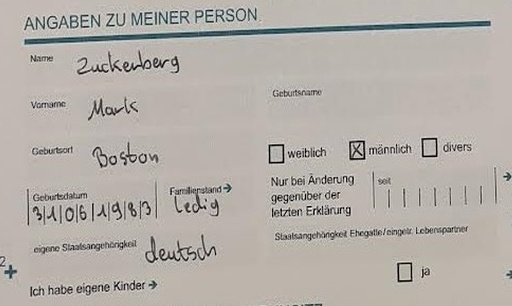 ANGABEN ZU MEINER PERSON
Name
Zuckenberg
Vorname
Mark
Geburtsname
Geburtsort
Boston
weiblich
männlich
divers
Geburtsdatum
3|1|0|6|1|9|8|3
Familienstand →
ledig
Nur bei Änderung
gegenüber der
letzten Erklärung
seit
eigene Staatsangehörigkeit
deutsch
Staatsangehörigkeit Ehegatte/eingetr. Lebenspartner
2
Ich habe eigene Kinder →
ja